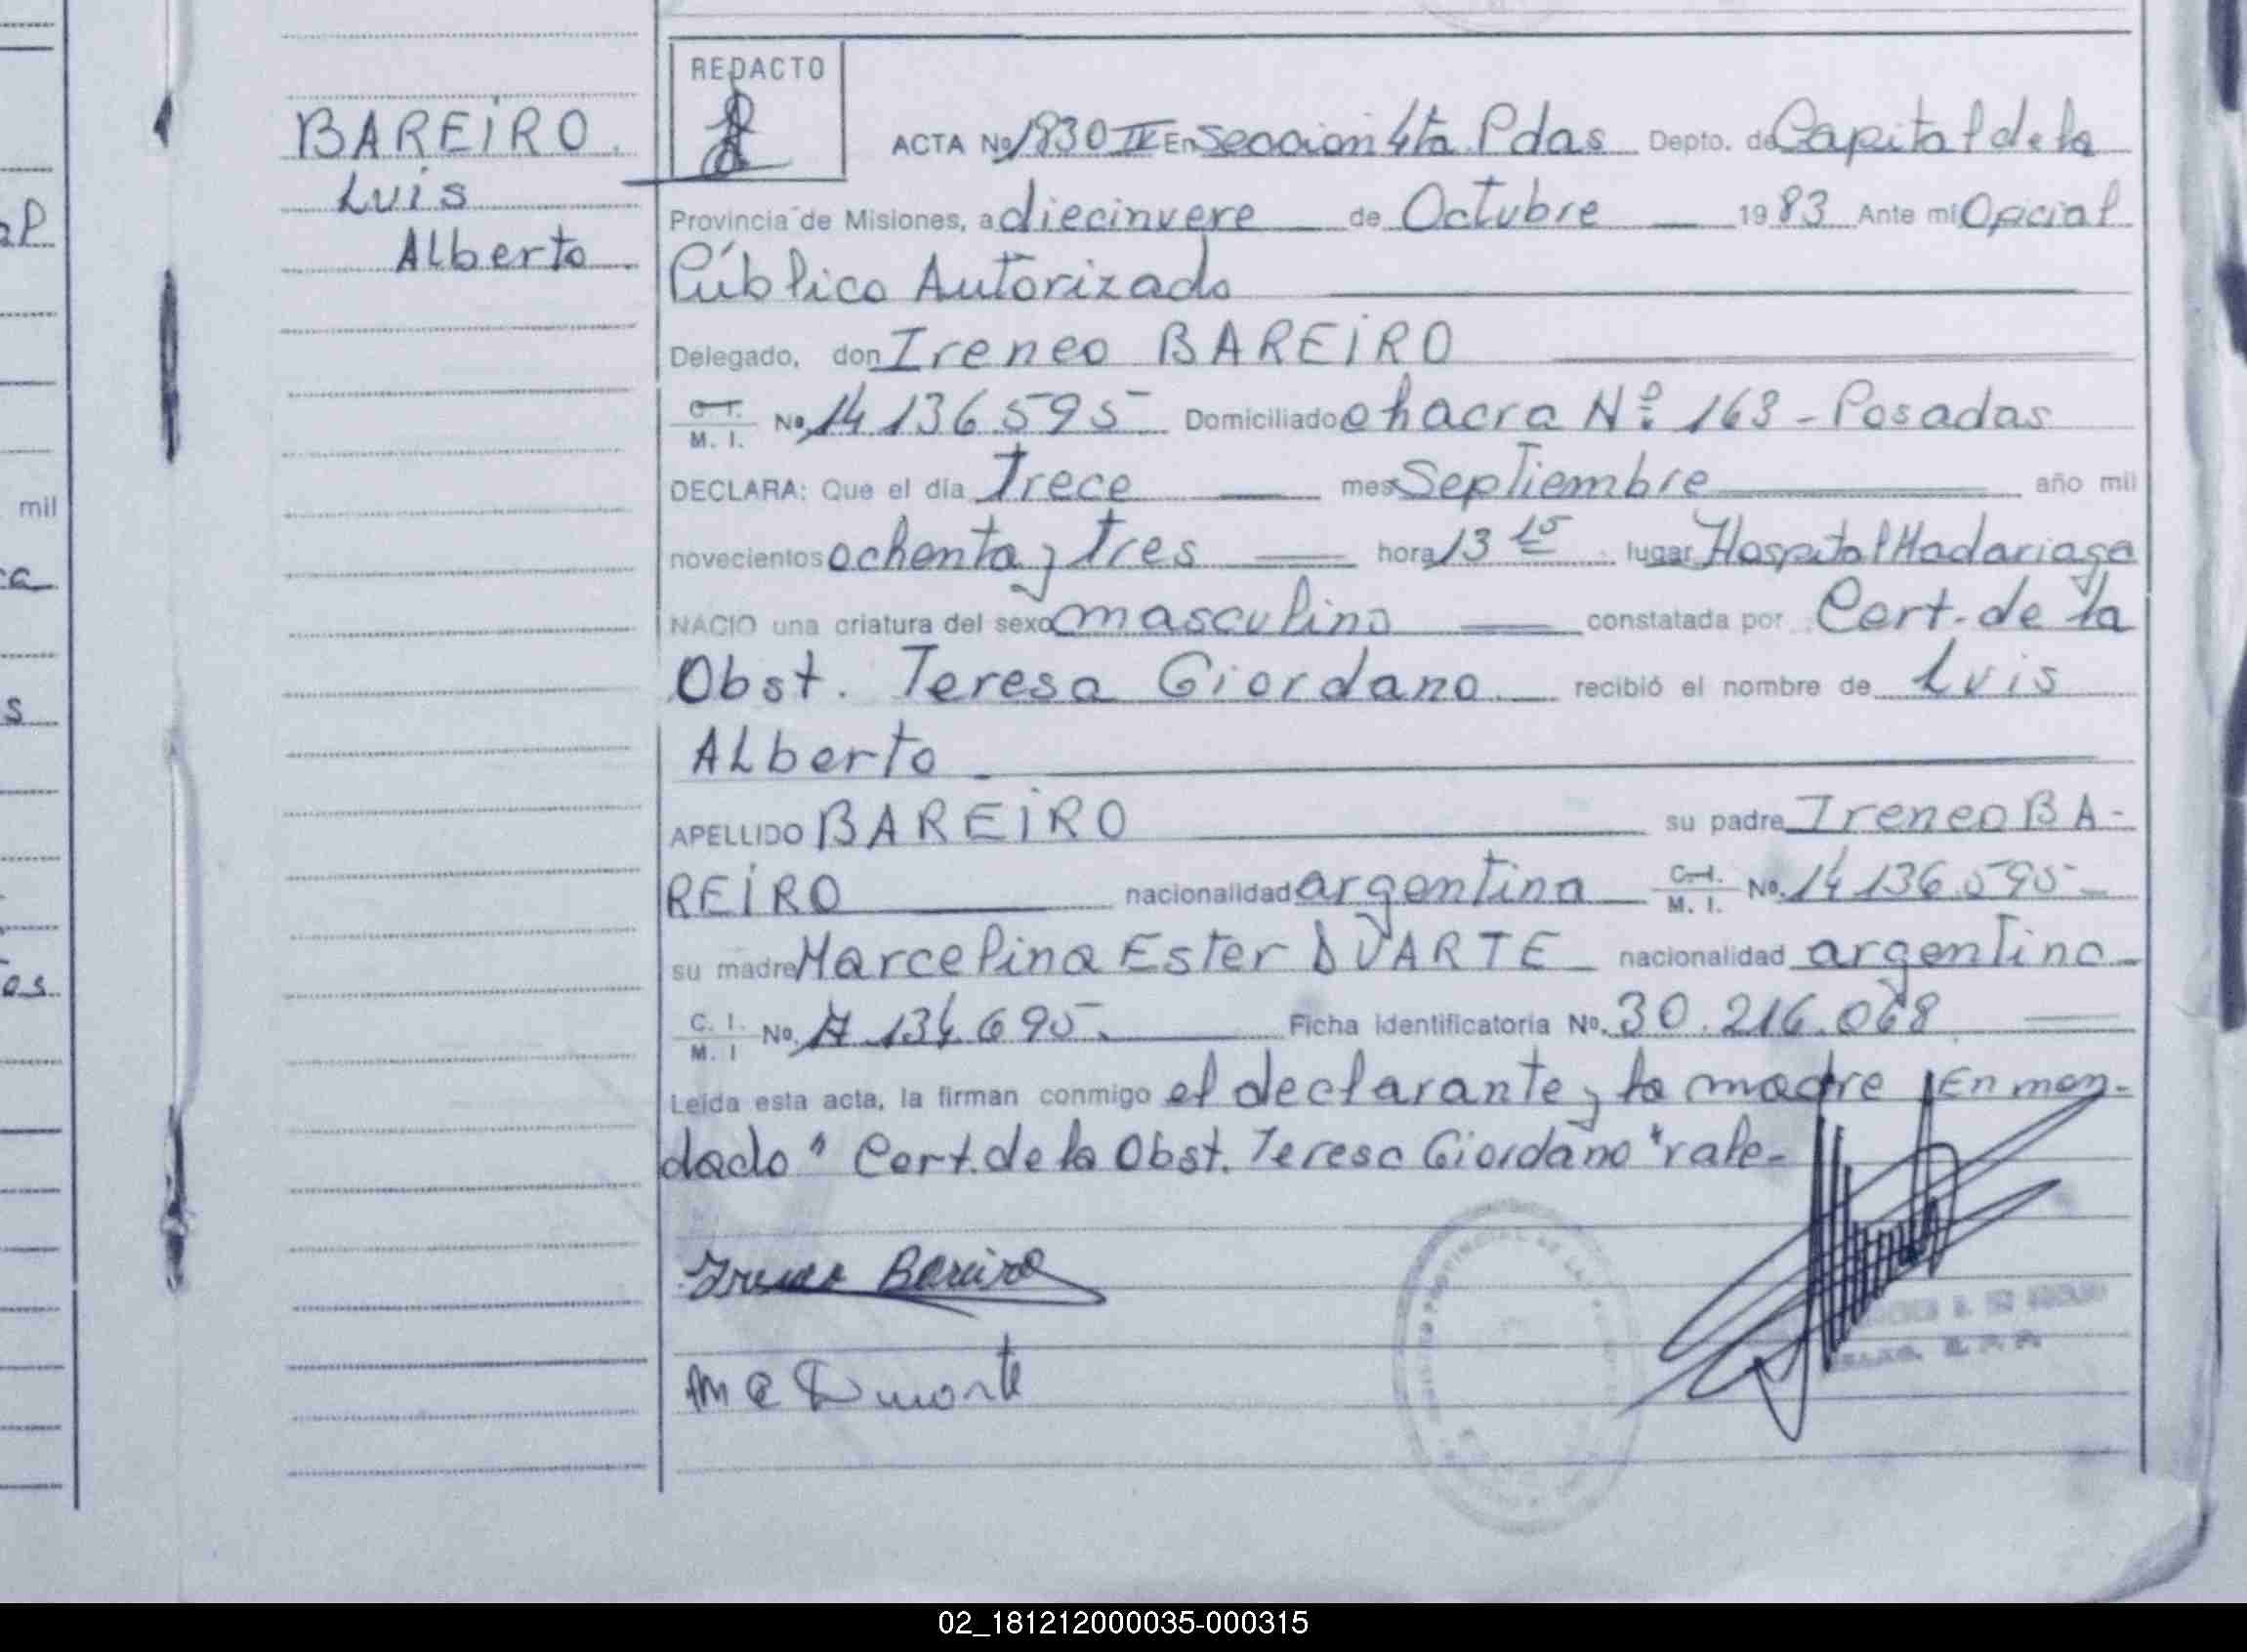 BAREIRO.
Luis
Alberto
REDACTO
ACTA No 1830 IV En Seccion 4ta Pdas Depto. de Capital de la
Provincia de Misiones, a diecinueve de Octubre 1983 Ante mi Oficial
Público Autorizado
Delegado, don Ireneo BAREIRO
C. I. M. I. No. 14.136.595 Domiciliado chacra Nº 163 - Posadas
DECLARA: Que el día Trece mes Septiembre año mil
novecientos ochenta y tres hora 13 15 lugar Hospital Madariaga
NACIO una criatura del sexo masculino constatada por Cert. de la
Obst. Teresa Giordano recibió el nombre de Luis
Alberto
APELLIDO BAREIRO su padre Ireneo BA-
REIRO nacionalidad argentina C. I. M. I. No. 14.136.595
su madre Marcelina Ester DUARTE nacionalidad argentina
C. I. M. I No. 134.695. Ficha identificatoria No. 30.216.068
Leída esta acta, la firman conmigo el declarante y la madre En men-
dado " Cert. de la Obst. Teresa Giordano " vale-
Ireneo Bareiro
M E Duarte
mil
02_181212000035-000315